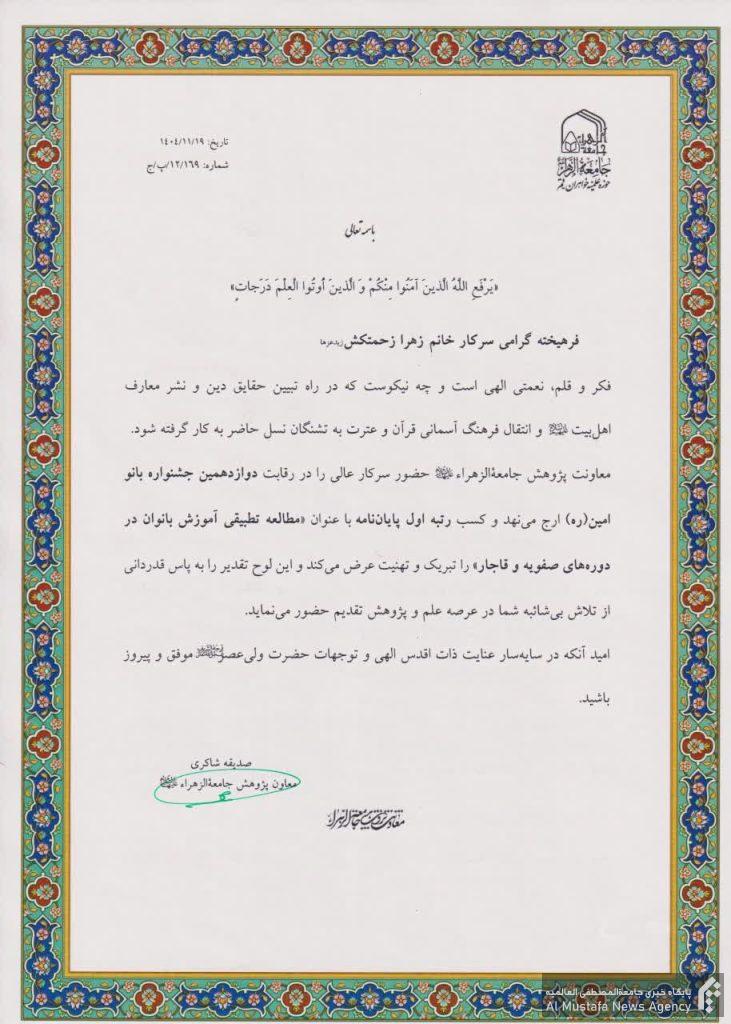 تاریخ: ۱۴۰۴/۱۱/۱۹
شماره: ۱۲/۱۶۹/ب/ج
جامعة الزهرا
حوزه علمیه خواهران - قم
باسمه تعالی
«یَرْفَعِ اللَّهُ الَّذینَ آمَنُوا مِنْکُمْ وَ الَّذینَ أُوتُوا الْعِلْمَ دَرَجاتٍ»
فرهیخته گرامی سرکار خانم زهرا زحمتکش زیدعزها
فکر و قلم، نعمتی الهی است و چه نیکوست که در راه تبیین حقایق دین و نشر معارف
اهل‌بیت و انتقال فرهنگ آسمانی قرآن و عترت به تشنگان نسل حاضر به کار گرفته شود.
معاونت پژوهش جامعةالزهراء حضور سرکار عالی را در رقابت دوازدهمین جشنواره بانو
امین(ره) ارج می‌نهد و کسب رتبه اول پایان‌نامه با عنوان «مطالعه تطبیقی آموزش بانوان در
دوره‌های صفویه و قاجار» را تبریک و تهنیت عرض می‌کند و این لوح تقدیر را به پاس قدردانی
از تلاش بی‌شائبه شما در عرصه علم و پژوهش تقدیم حضور می‌نماید.
امید آنکه در سایه‌سار عنایت ذات اقدس الهی و توجهات حضرت ولی‌عصر موفق و پیروز
باشید.
صدیقه شاکری
معاون پژوهش جامعةالزهراء
پایگاه خبری جامعةالمصطفی العالمیه
Al Mustafa News Agency